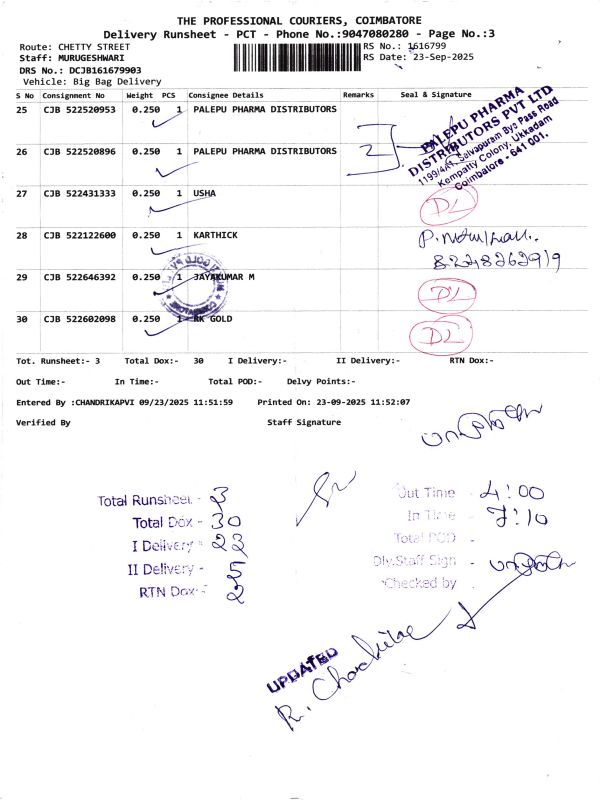 THE PROFESSIONAL COURIERS, COIMBATORE
Delivery Runsheet - PCT - Phone No.:9047080280 - Page No.:3
Route: CHETTY STREET
RS No.: 1616799
Staff: MURUGESHWARI
RS Date: 23-Sep-2025
DRS No.: DCJB161679903
Vehicle: Big Bag Delivery
S No Consignment No Weight PCS Consignee Details Remarks Seal & Signature
25 CJB 522520953 0.250 1 PALEPU PHARMA DISTRIBUTORS
PALEPU PHARMA
DISTRIBUTORS PVT LTD
1199/4A1, Selvapuram Bye Pass Road
Kempatty Colony, Ukkadam
Coimbatore - 641 001.
26 CJB 522520896 0.250 1 PALEPU PHARMA DISTRIBUTORS
2
27 CJB 522431333 0.250 1 USHA
DL
28 CJB 522122600 0.250 1 KARTHICK
29 CJB 522646392 0.250 1 JAYAKUMAR M
DL
30 CJB 522602098 0.250 1 RK GOLD
DL
Tot. Runsheet:- 3 Total Dox:- 30 I Delivery:- II Delivery:- RTN Dox:-
Out Time:- In Time:- Total POD:- Delvy Points:-
Entered By :CHANDRIKAPVI 09/23/2025 11:51:59 Printed On: 23-09-2025 11:52:07
Verified By Staff Signature
Total Runsheet - 3
Total Dox - 30
I Delivery - 23
II Delivery - 5
RTN Dox - 2
Out Time - 4:00
In Time - 7:10
Total POD -
Dly.Staff Sign -
Checked by
UPDATED